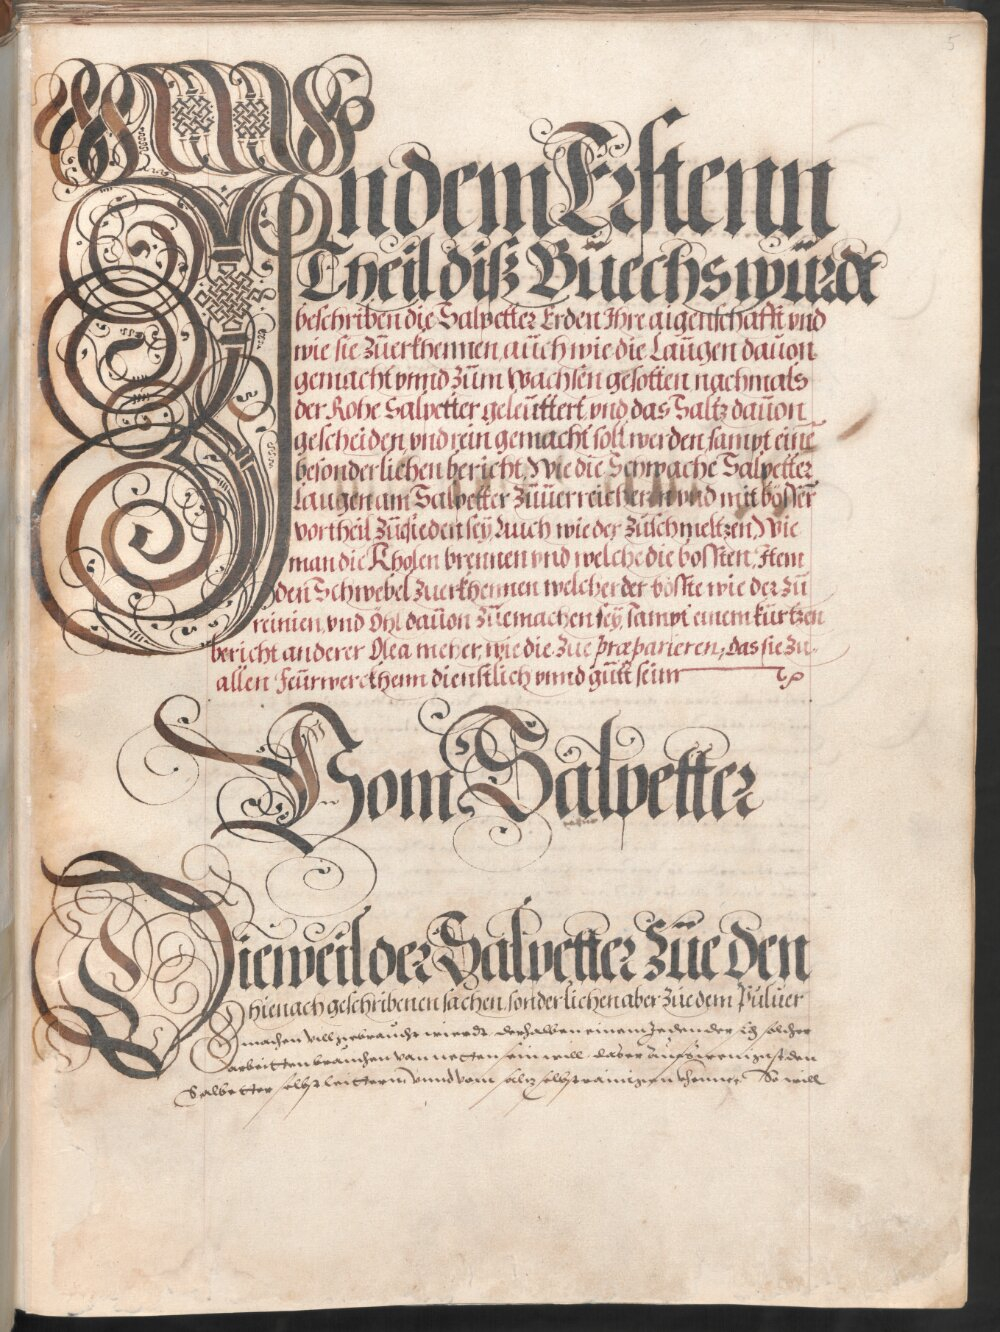 5
In dem Erstenn
Theil diß Buechs würdt
beschriben die Salpetter Erden Ihre aigenschafft vnd
wie sie Zuerkhennen, auch wie die Laugen dauon
gemacht vnnd Zum wachsen gesotten nachmals
der Rohe Salpetter geleuttert, vnd das Saltz dauon
gescheiden, vnd rein gemacht soll werden, sampt einē
besonderlichen bericht, Wie die Schwache Salpetter
Laugen am Salpetter Zuuerreichern vnd mit bösser
vortheil Zusieden sey, Auch wie der Zuschmeltzen, Wie
man die Kholen brennen vnd welche die bössten, Item
den Schwebel Zuerkhennen welcher der bösste wie der Zu
reinien, vnd Öhl dauon Zuemachen sey, sampt einem kurtzen
bericht anderer Olea meher, wie die Zue præparieren, das sie Zu
allen Feurwerckhenn dienstlich vnnd gutt sein
Vom Salpetter
Dieweil der Salpetter Zue den
hienach geschribenen sachen, sonderlichen aber Zue dem Puluer
machen vill gebraucht wierdt, derhalben einem Jeden der sich solcher
arbeitten brauchen vnnd will, das er auffs wenigst den
Salpetter selbst leuttern vnnd vom saltz selbst rainigen khenne, So will